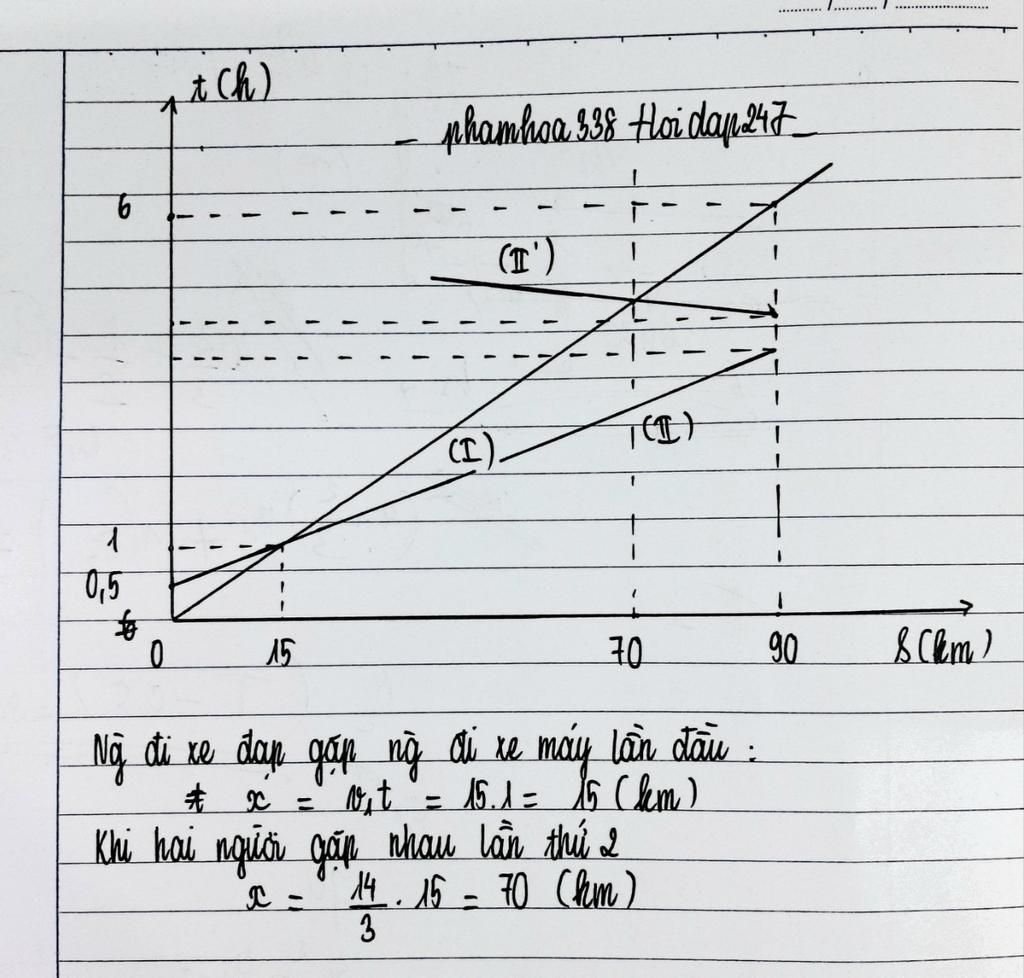 t(h)
- phamhoa338 Hoidap247-
6
(II')
(I)
(II)
1
0,5
0
15
70
90
S(km)
Ng̀ đi xe đạp gặp ng̀ đi xe máy lần đầu :
x = v₁t = 15.1 = 15 (km)
Khi hai người gặp nhau lần thứ 2
x = 14/3 . 15 = 70 (km)